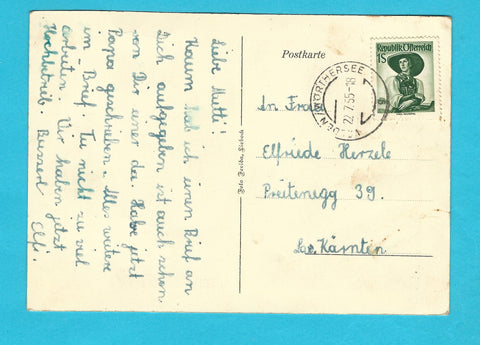 Liebe Mutti!
Kaum hab ich einen Brief an
Dich aufgegeben ist auch schon
von Dir einer da. Habe jetzt
Papa geschrieben. Alles weitere
im Brief. Tu nicht zu viel
arbeiten. Wir haben jetzt
Hochbetrieb. Busserl Elfi.
Postkarte
Republik Österreich
1S
WÖRTHERSEE
22.7.55-18
An Frau
Elfriede Herzele
Preitenegg 39.
Kärnten